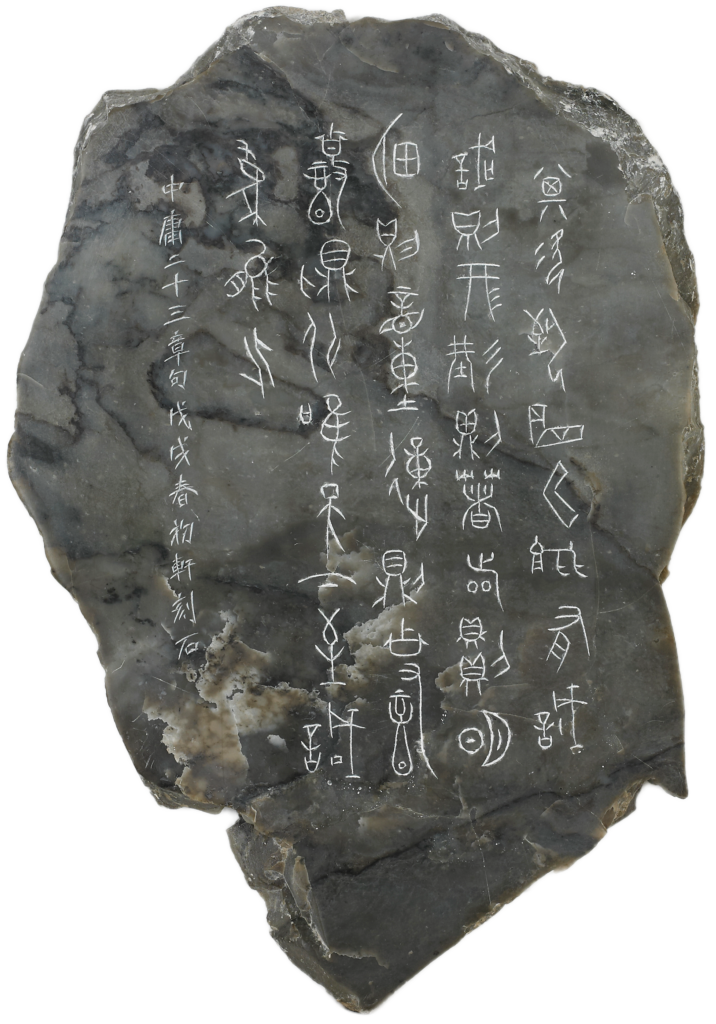 其次致曲曲能有誠
誠則形形則著著則明
明則動動則變
變則化唯天下至誠
為能化
中庸二十三章句戊戌春軒刻石